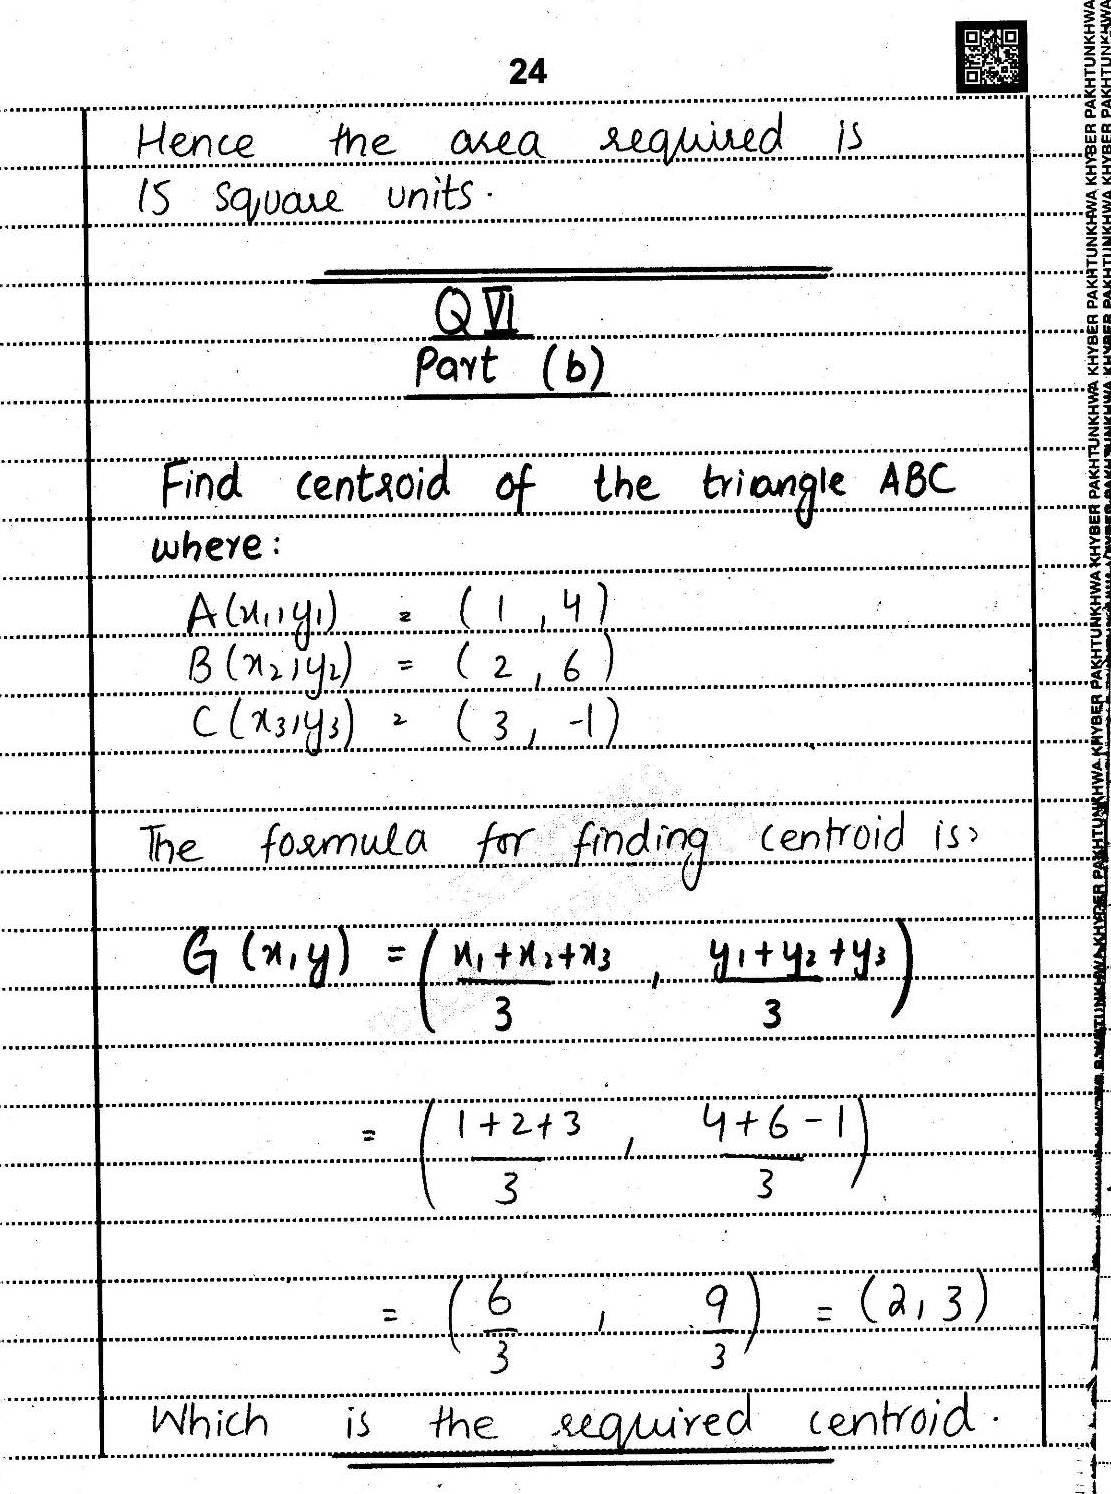 24
Hence the area required is
15 square units.
Q VI
Part (b)
Find centroid of the triangle ABC
where:
A(x₁, y₁) = ( 1 , 4 )
B (x₂, y₂) = ( 2 , 6 )
C (x₃, y₃) = ( 3 , -1 )
The formula for finding centroid is:
G (x, y) = ( x₁+x₂+x₃ / 3 , y₁+y₂+y₃ / 3 )
= ( 1+2+3 / 3 , 4+6-1 / 3 )
= ( 6/3 , 9/3 ) = (2, 3)
Which is the required centroid.
KHYBER PAKHTUNKHWA KHYBER PAKHTUNKHWA KHYBER PAKHTUNKHWA KHYBER PAKHTUNKHWA